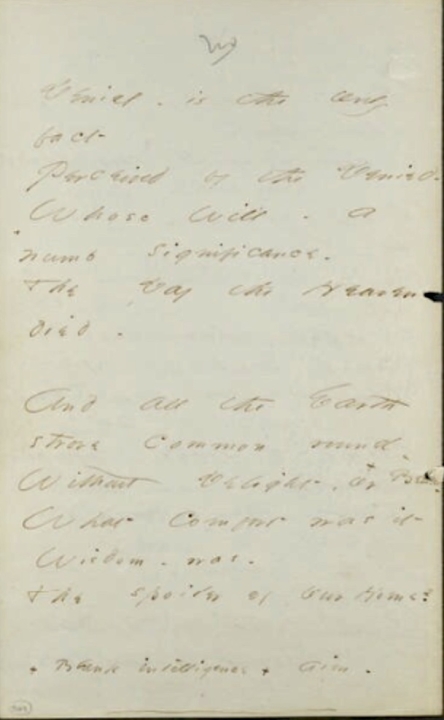 Denial - is the only
fact
Perceived by the Denied -
Whose Will - a
numb significance -
+ The Day the Heaven
died -
And all the Earth
strove common round
Without Delight, or Beam
What Comfort was it
Wisdom - was -
+ The spoiler of Our Home?
+ Blank intelligence + Aim -